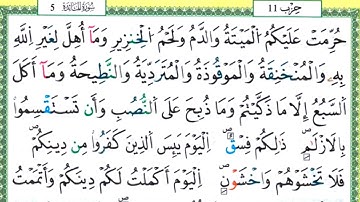 حِزْب 11 سُورَةُ المَائِدَة 5
حُرِّمَتْ عَلَيْكُمُ الْمَيْتَةُ وَالدَّمُ وَلَحْمُ الْخِنزِيرِ وَمَا أُهِلَّ لِغَيْرِ اِللَّهِ
بِهِ وَالْمُنْخَنِقَةُ وَالْمَوْقُوذَةُ وَالْمُتَرَدِّيَةُ وَالنَّطِيحَةُ وَمَا أَكَلَ
اَلسَّبُعُ إِلَّا مَا ذَكَّيْتُمْ وَمَا ذُبِحَ عَلَى اَلنُّصُبِ وَأَن تَسْتَقْسِمُوا
بِالْأَزْلَٰمِ ذَٰلِكُمْ فِسْقٌ اَلْيَوْمَ يَئِسَ اَلَّذِينَ كَفَرُوا مِن دِينِكُمْ
فَلَا تَخْشَوْهُمْ وَاخْشَوْنِ اِلْيَوْمَ أَكْمَلْتُ لَكُمْ دِينَكُمْ وَأَتْمَمْتُ